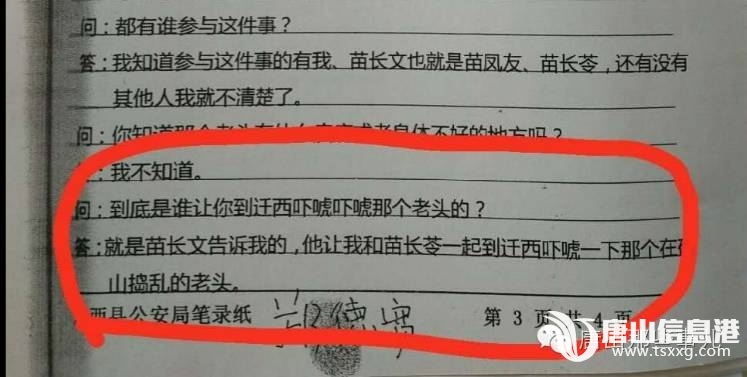 问：都有谁参与这件事？
答：我知道参与这件事的有我、苗长文也就是苗凤友、苗长苓，还有没有
其他人我就不清楚了。
问：你知道那个老头有什么疾病或者身体不好的地方吗？
：我不知道。
问：到底是谁让你到迁西吓唬吓唬那个老头的？
答：就是苗长文告诉我的，他让我和苗长苓一起到迁西吓唬一下那个在
山捣乱的老头。
西县公安局笔录纸 第 3 页 共 4 页
唐山信息港
www.tsxxg.com